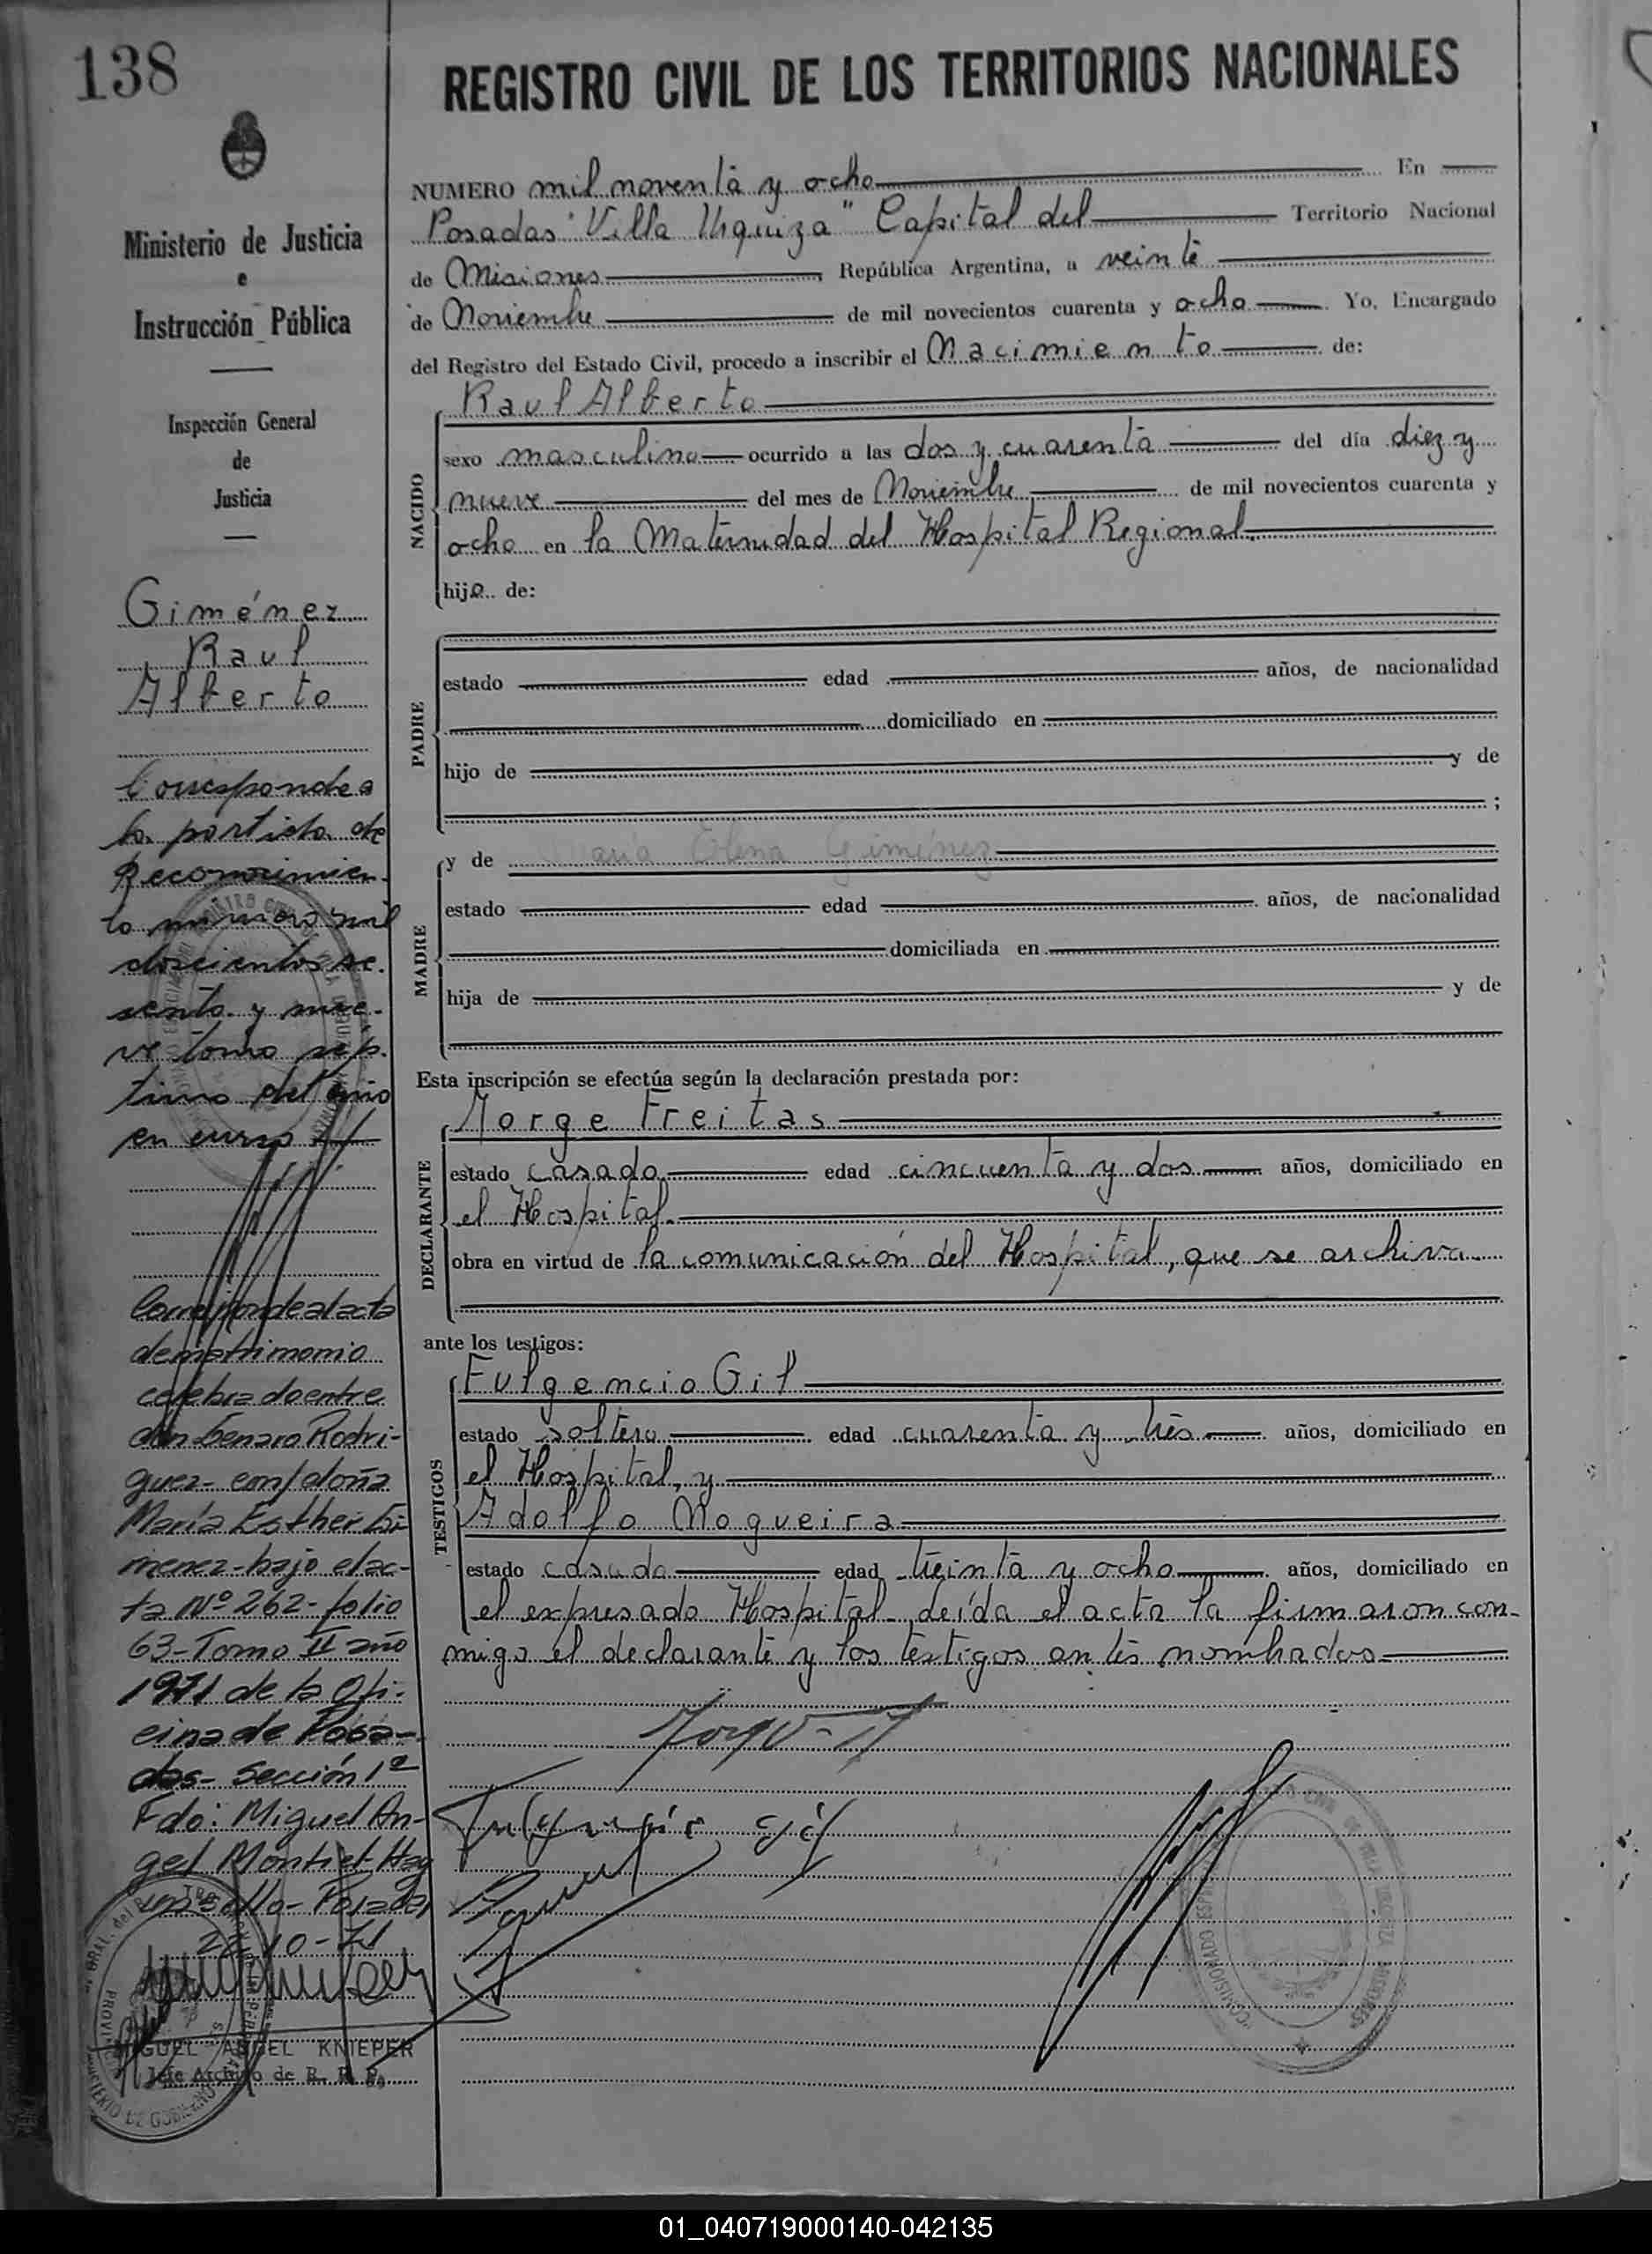 138
REGISTRO CIVIL DE LOS TERRITORIOS NACIONALES
Ministerio de Justicia
e
Instrucción Pública
Inspección General
de
Justicia
Giménez
Raul
Alberto
Corresponde a
la partida de
Reconocimien-
to número mil
doscientos se-
senta y nue-
ve tomo sép-
timo del año
en curso
Corresponde al acta
de matrimonio
celebrado entre
don Genaro Rodri-
guez con doña
María Esther Gi-
menez - bajo el ac-
ta Nº 262 - folio
63 - Tomo II año
1971 de la Ofi-
cina de Posa-
das - Sección 1ª
Fdo: Miguel An-
gel Montiel Hay
un sello - Posadas
10-71
MIGUEL ANGEL KNIEPER
Jefe Archivo de R. P.
NUMERO mil noventa y ocho En
Posadas "Villa Urquiza" Capital del Territorio Nacional
de Misiones, República Argentina, a veinte
de Noviembre de mil novecientos cuarenta y ocho. Yo, Encargado
del Registro del Estado Civil, procedo a inscribir el Nacimiento de:
NACIDO
Raul Alberto
sexo masculino ocurrido a las dos y cuarenta del día diez y
nueve del mes de Noviembre de mil novecientos cuarenta y
ocho en la Maternidad del Hospital Regional.
hijo de:
PADRE
estado edad años, de nacionalidad
domiciliado en
hijo de y de
;
MADRE
y de María Elena Giménez
estado edad años, de nacionalidad
domiciliada en
hija de y de
Esta inscripción se efectúa según la declaración prestada por:
DECLARANTE
Jorge Freitas
estado casado edad cincuenta y dos años, domiciliado en
el Hospital.
obra en virtud de la comunicación del Hospital, que se archiva
ante los testigos:
TESTIGOS
Fulgencio Gil
estado soltero edad cuarenta y tres años, domiciliado en
el Hospital, y
Adolfo Nogueira
estado casado edad treinta y ocho años, domiciliado en
el expresado Hospital. Leída el acta la firmaron con-
migo el declarante y los testigos antes nombrados
01_040719000140-042135